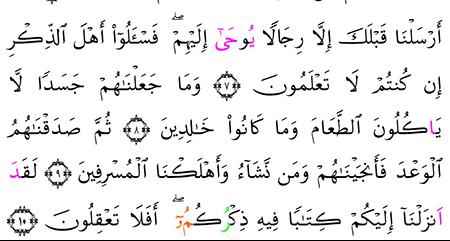 أَرْسَلْنَا قَبْلَكَ إِلَّا رِجَالًا يُوحَىٰٓ إِلَيْهِمْ ۖ فَسْـَٔلُوٓا۟ أَهْلَ ٱلذِّكْرِ
إِن كُنتُمْ لَا تَعْلَمُونَ ﴿٧﴾ وَمَا جَعَلْنَـٰهُمْ جَسَدًا لَّا
يَاكُلُونَ ٱلطَّعَامَ وَمَا كَانُوا۟ خَـٰلِدِينَ ﴿٨﴾ ثُمَّ صَدَقْنَـٰهُمُ
ٱلْوَعْدَ فَأَنجَيْنَـٰهُمْ وَمَن نَّشَآءُ وَأَهْلَكْنَا ٱلْمُسْرِفِينَ ﴿٩﴾ لَقَدَ
ٱنزَلْنَآ إِلَيْكُمْ كِتَـٰبًا فِيهِ ذِكْرُكُمُۥٓ ۖ أَفَلَا تَعْقِلُونَ ﴿١٠﴾